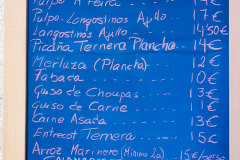 Pulpo A Feira 17€
Pulpo-Langostinos Ajillo 17€
Langostinos Ajillo 14,50€
Picaña Ternera Plancha 14€
Merluza (Plancha) 12€
Zabaca 10€
Guiso de Choupas 13€
Guiso de Carne 11€
Carne Asada 13€
Entrecot Ternera 15€
Arroz Marinero (Mínimo 2p) 15€/perso